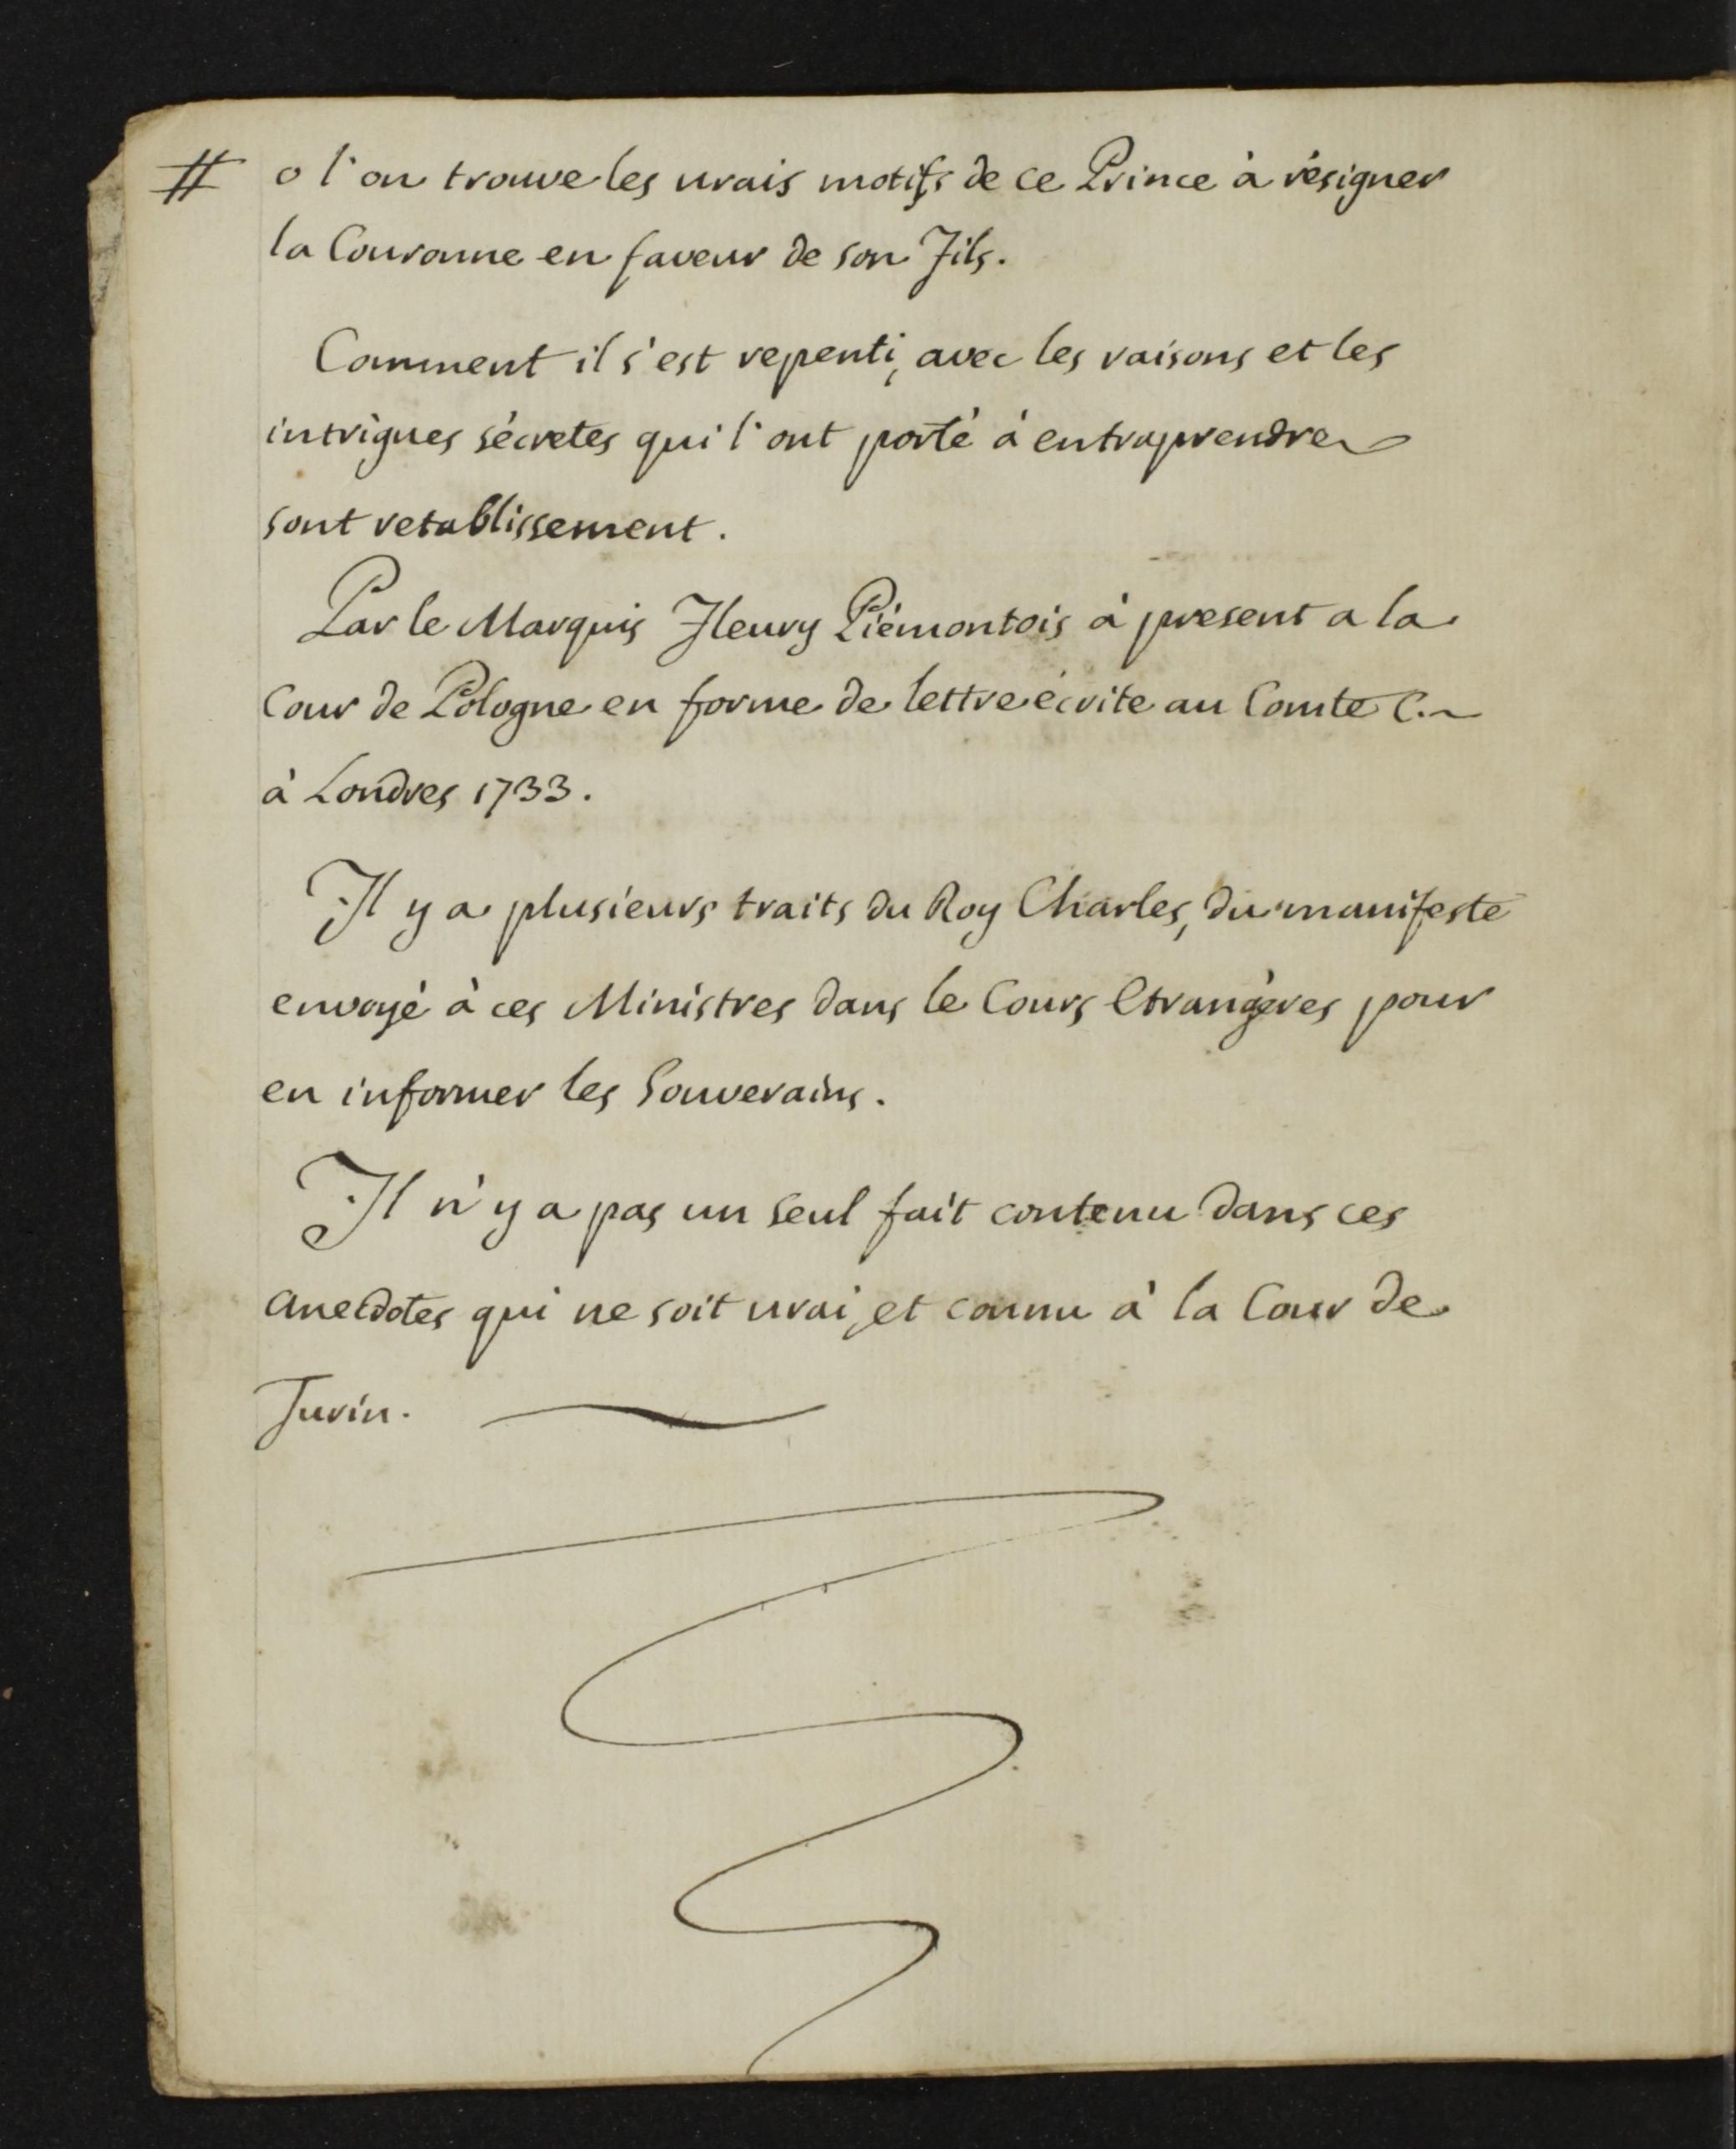 # o l'on trouve les vrais motifs de ce Prince à résigner
la Couronne en faveur de son Fils.
Comment il s'est repenti, avec les raisons et les
intrigues sécretes qui l'ont porté à entraprendre
sont retablissement.
Par le Marquis Fleury Piémontois à present a la
Cour de Pologne en forme de lettre écrite au Comte C.~
à Londres 1733.
Il y a plusieurs traits du Roy Charles, du manifeste
envoyé à ces Ministres dans le Cours Etrangères pour
en informer les Souverains.
Il n'y a pas un seul fait contenu dans ces
anecdotes qui ne soit vrai, et connu à la Cour de
Turin.